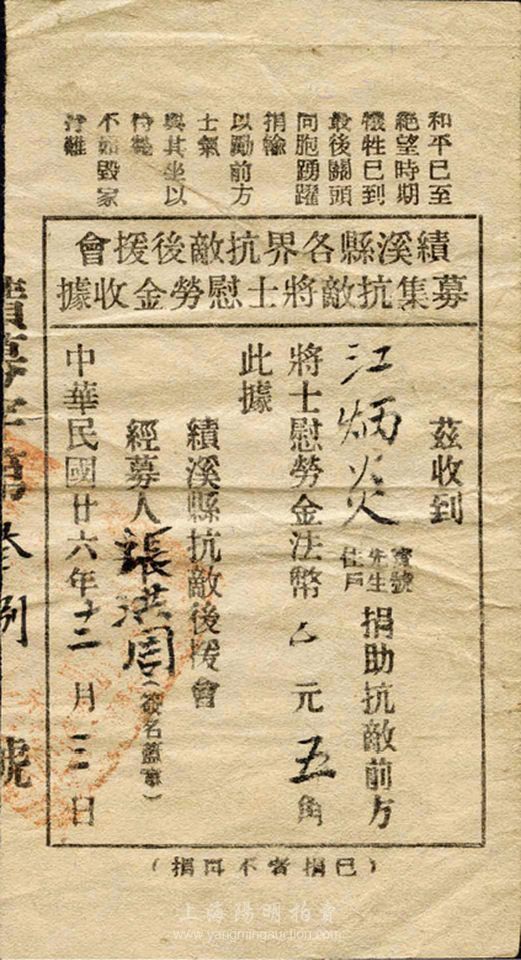 和平已至
絶望時期
犧牲已到
最後關頭
同胞踴躍
捐輸
以勵前方
士氣
與其坐以
待斃
不如毀家
紓難
績溪縣各界抗敵後援會
募集抗敵將士慰勞金收據
茲收到
江炳炎
寶號
先生
住戶
捐助抗敵前方
將士慰勞金法幣 元五角
此據
績溪縣抗敵後援會
經募人張洪周(簽名蓋章)
中華民國廿六年十二月三日
字第 號
(已捐者不再捐)
上海陽明拍賣
www.yangmingauction.com